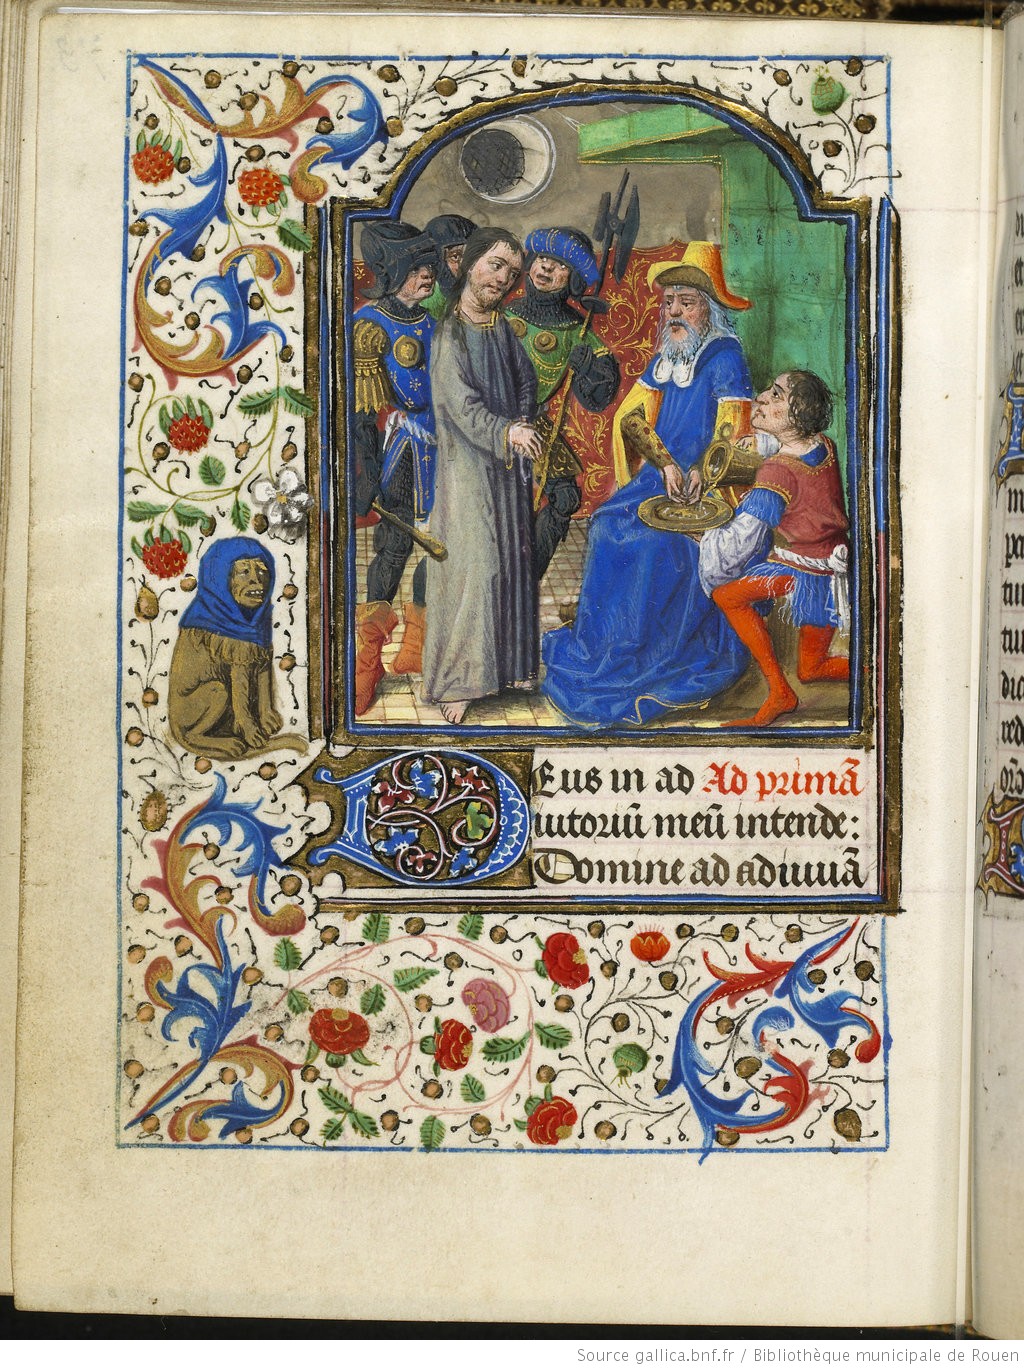 Eus in ad Ad primā
iutoriū meū intende:
Domine ad adiuuā
Source gallica.bnf.fr / Bibliothèque municipale de Rouen